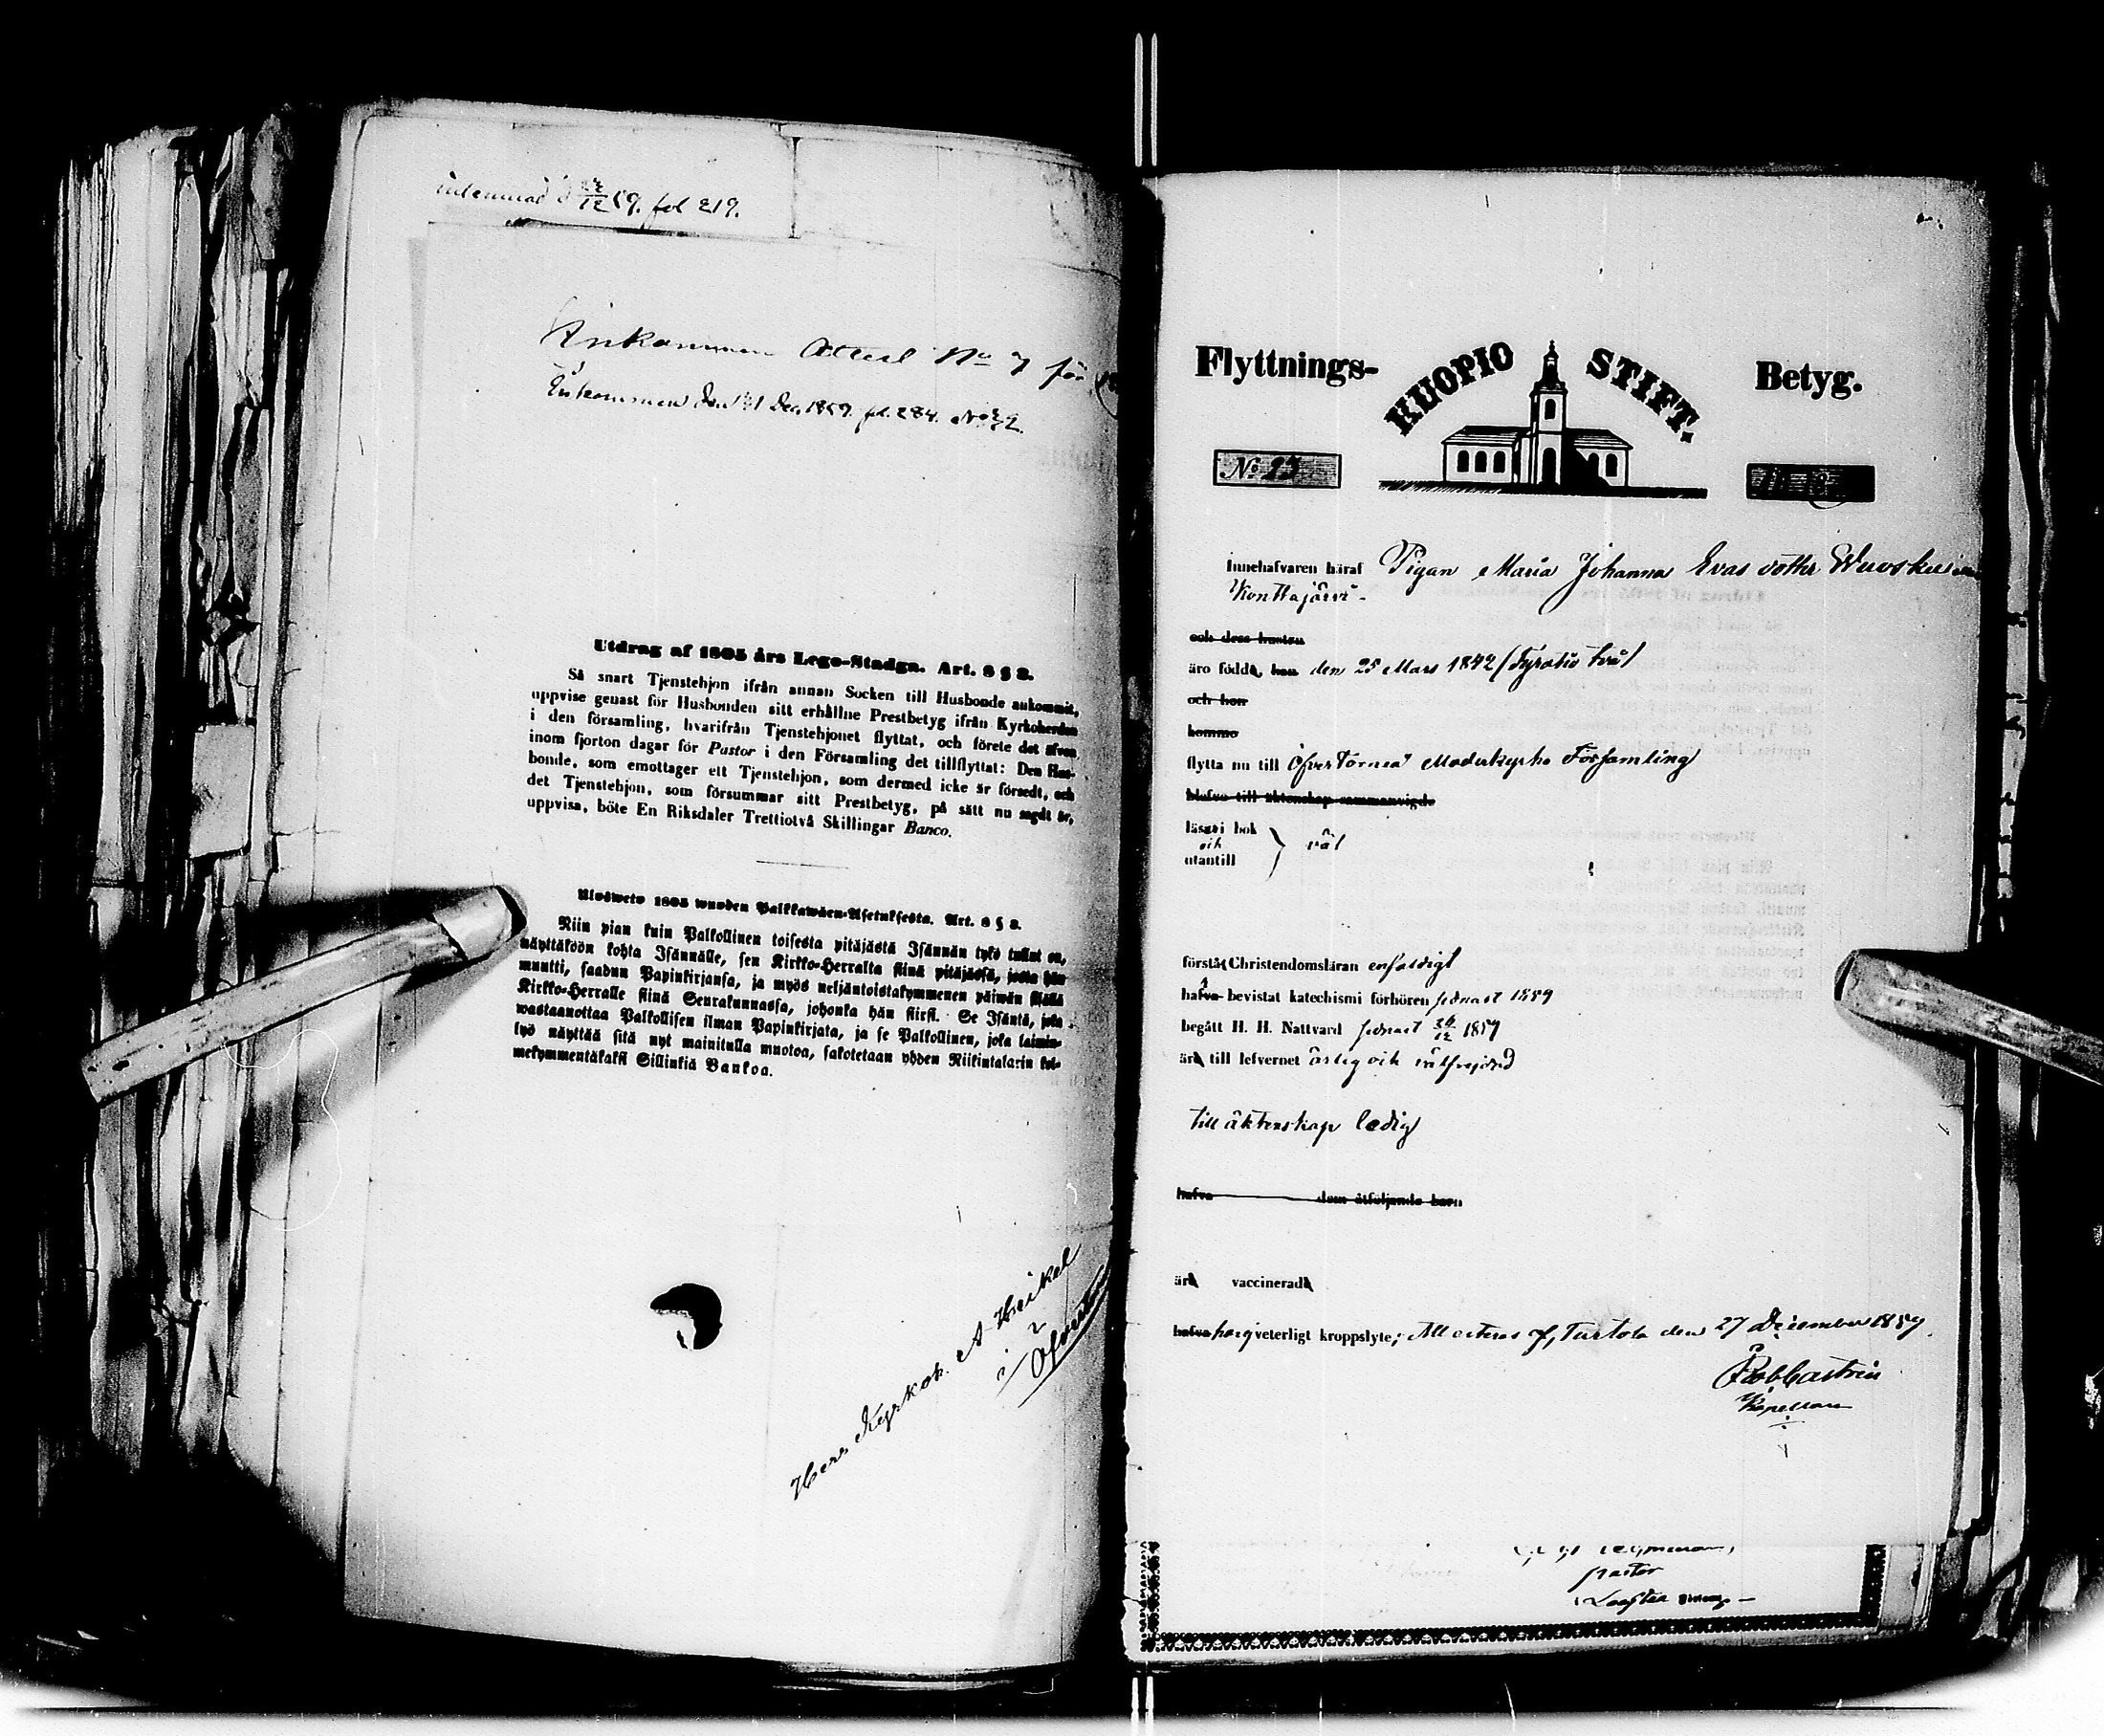 fol 219.
Inkommen Attest No 7 för
Inkommen den 31 Dec 1859. fol. 284. No 32.
Utdrag af 1805 års Lego-Stadga. Art. 8 § 2.
Så snart Tjenstehjon ifrån annan Socken till Husbonde ankommit,
uppvise genast för Husbonden sitt erhållne Prestbetyg ifrån Kyrkoherden
i den församling, hvarifrån Tjenstehjonet flyttat, och förete det äfven
inom fjorton dagar för Pastor i den Församling det tillflyttat: Den Hus-
bonde, som emottager ett Tjenstehjon, som dermed icke är försedt, och
det Tjenstehjon, som försummar sitt Prestbetyg, på sätt nu sagdt är,
uppvisa, böte En Riksdaler Trettiotvå Skillingar Banco.
Ulosweto 1805 wuoden Palkkawäen-Asetuksesta. Art. 8 § 2.
Niin pian kuin Palkollinen toisesta pitäjästä Isännän tykö tullut on,
näyttäköön kohta Isännälle, sen Kirkko-Herralta siinä pitäjässä, josta hän
muutti, saadun Papinkirjansa, ja myös neljäntoistakymmenen päiwän sisällä
Kirkko-Herralle siinä Seurakunnassa, johonka hän siirsi. Se Isäntä, joka
wastaanottaa Palkollisen ilman Papinkirjata, ja se Palkollinen, joka laimin-
lyö näyttää sitä nyt mainitulla muotoa, sakotetaan yhden Riikintalarin kol-
mekymmentäkaksi Sillinkiä Bankoa.
Herr Kyrkoh. A Heikel
i
Flyttnings- KUOPIO STIFT. Betyg.
No 23
Innehafvaren häraf Pigan Maria Johanna Evas dotter
Konttajärvi
och dess hustru
äro födda, han den 25 Mars 1842 / fyratio två /
och hon
komma
flytta nu till Öfver Torneå Moderkyrko Församling
blifva till äktenskap sammanvigde
läsa i bok
och
utantill väl
förstå Christendomsläran enfaldigt
hafva bevistat katechismi förhören sednast 1859
begått H. H. Nattvard sednast 26/12 1859
äro till lefvernet ärlig och välfrejdad
till äktenskap ledig
hafva dem åtföljande barn
äro vaccinerade
hafva veterligt kroppslyte; Attesteras af, Turtola den 27 December 1859.
Rob Castrén
Kapellan
pastor